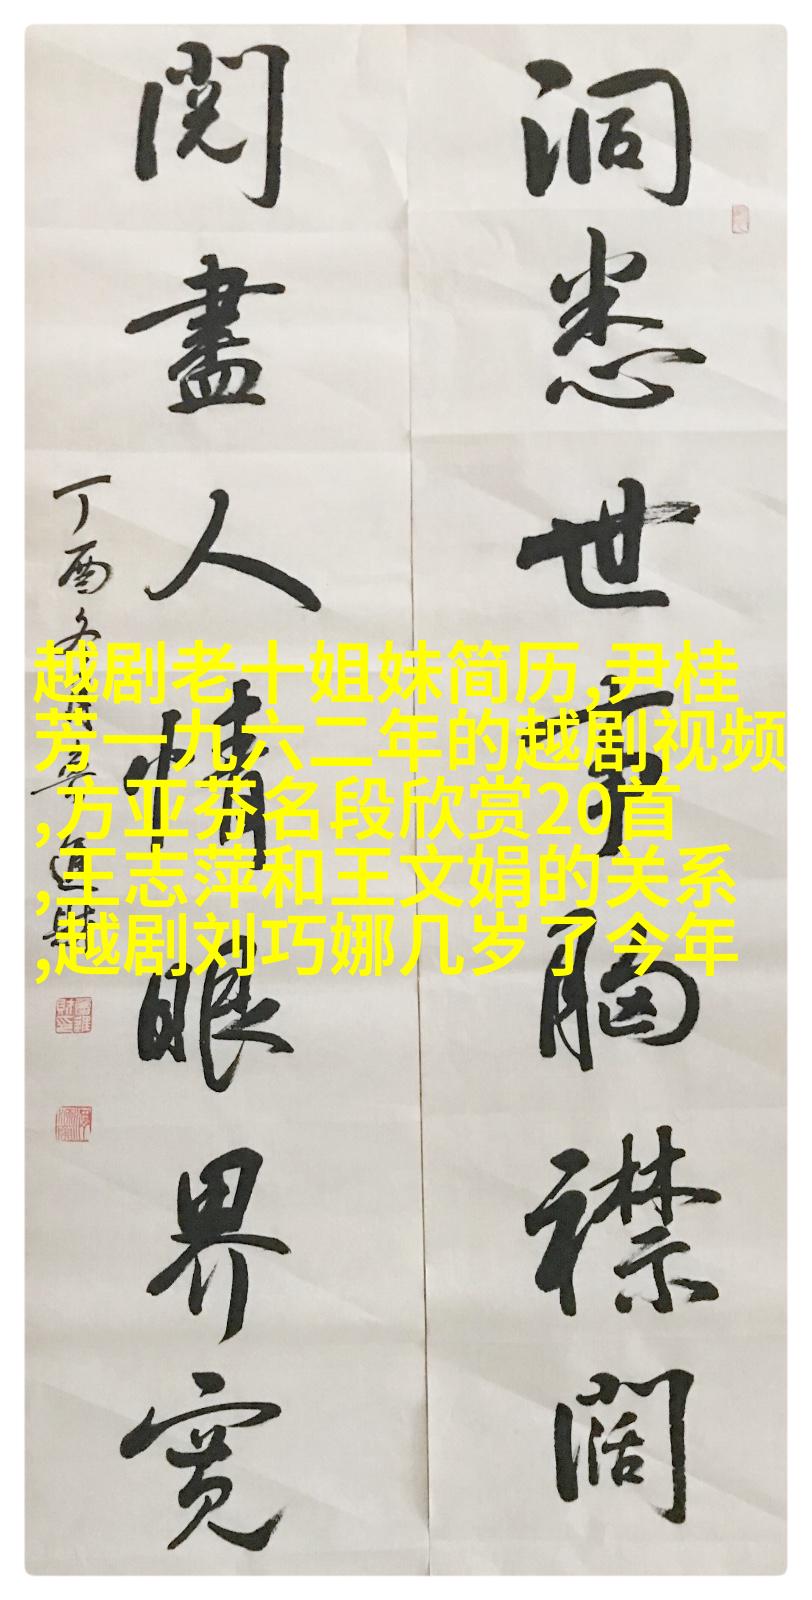 洞悉世事胸襟闊
閱盡人情眼界寬
丁酉冬
越剧老十姐妹简历,尹桂
芳一九六二年的越剧视频
,方亚芬名段欣赏20首
,王志萍和王文娟的关系
,越剧刘巧娜几岁了今年